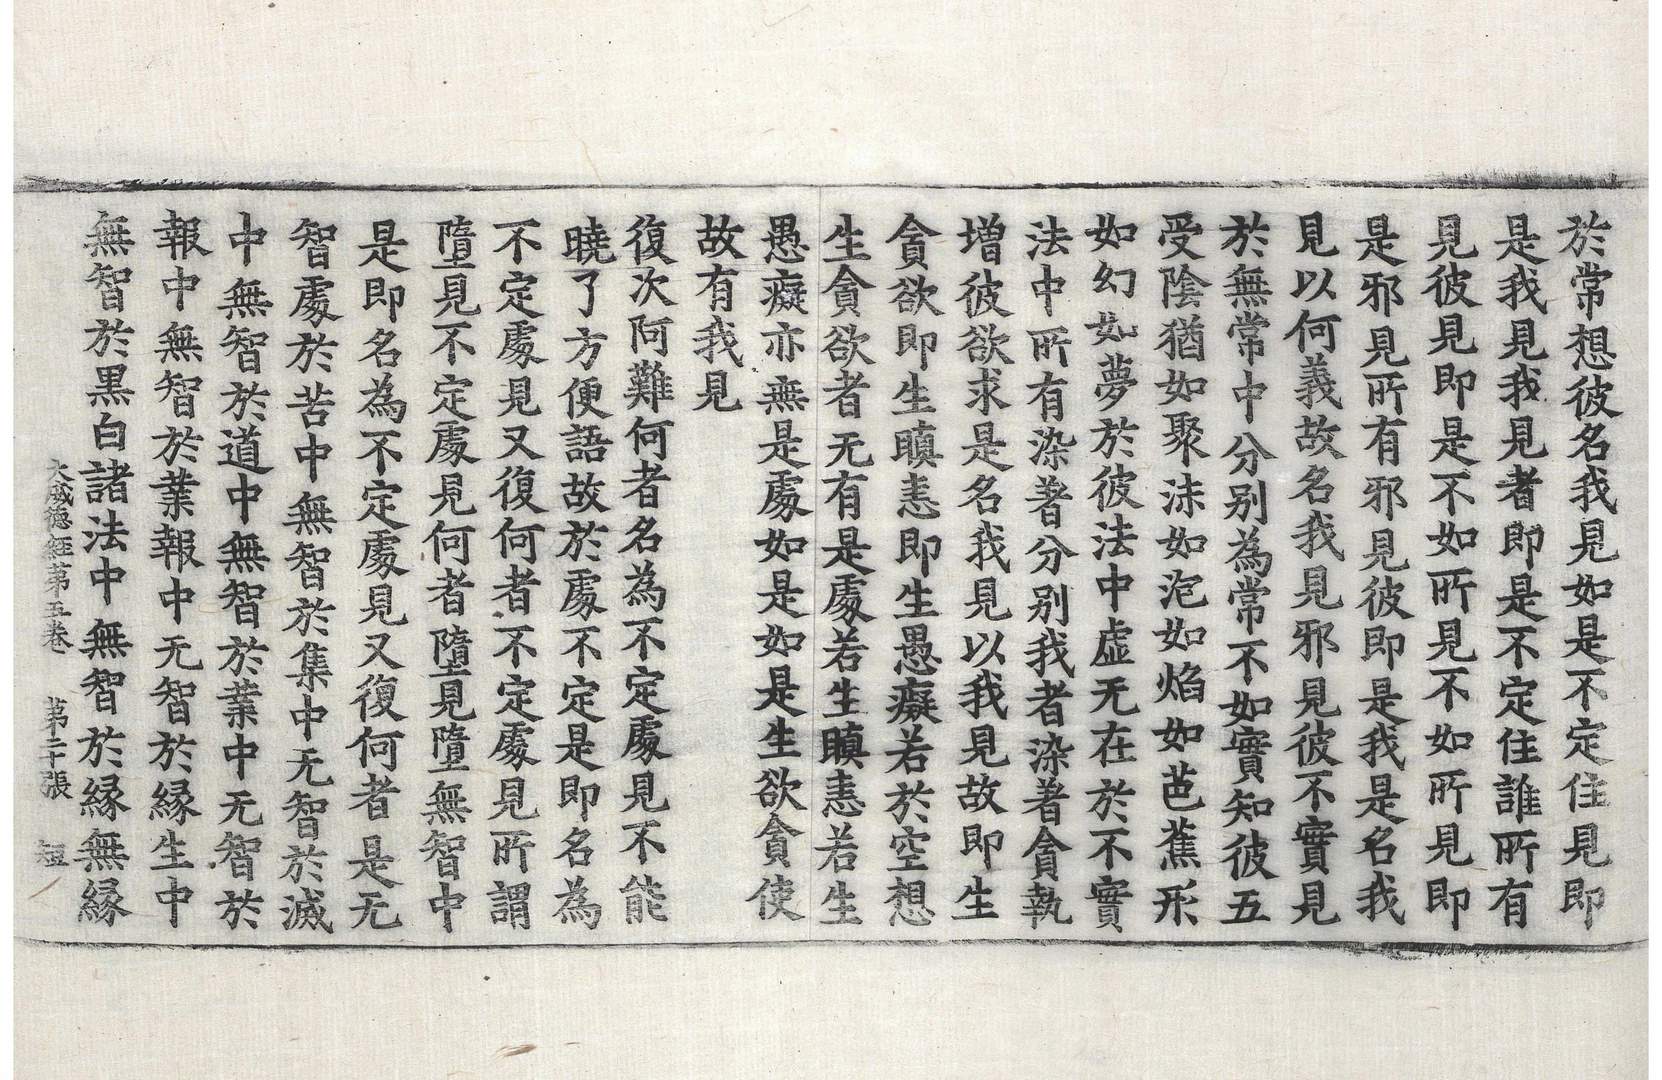 於常想彼名我見如是不定住見即
是我見我見者即是不定住誰所有
見彼見即是不如所見不如所見即
是邪見所有邪見彼即是我是名我
見以何義故名我見邪見彼不實見
於無常中分别為常不如實知彼五
受陰猶如聚沫如泡如焰如芭蕉形
如幻如夢於彼法中虛无在於不實
法中所有染著分别我者染著貪執
增彼欲求是名我見以我見故即生
貪欲即生瞋恚即生愚癡若於空想
生貪欲者无有是處若生瞋恚若生
愚癡亦無是處如是如是生欲貪使
故有我見
復次阿難何者名為不定處見不能
曉了方便語故於處不定是即名為
不定處見又復何者不定處見所謂
墮見不定處見何者墮見墮無智中
是即名為不定處見又復何者是无
智處於苦中無智於集中无智於滅
中無智於道中無智於業中无智於
報中無智於業報中无智於緣生中
無智於黒白諸法中無智於緣無緣
大威德經第五卷 第二十張 短